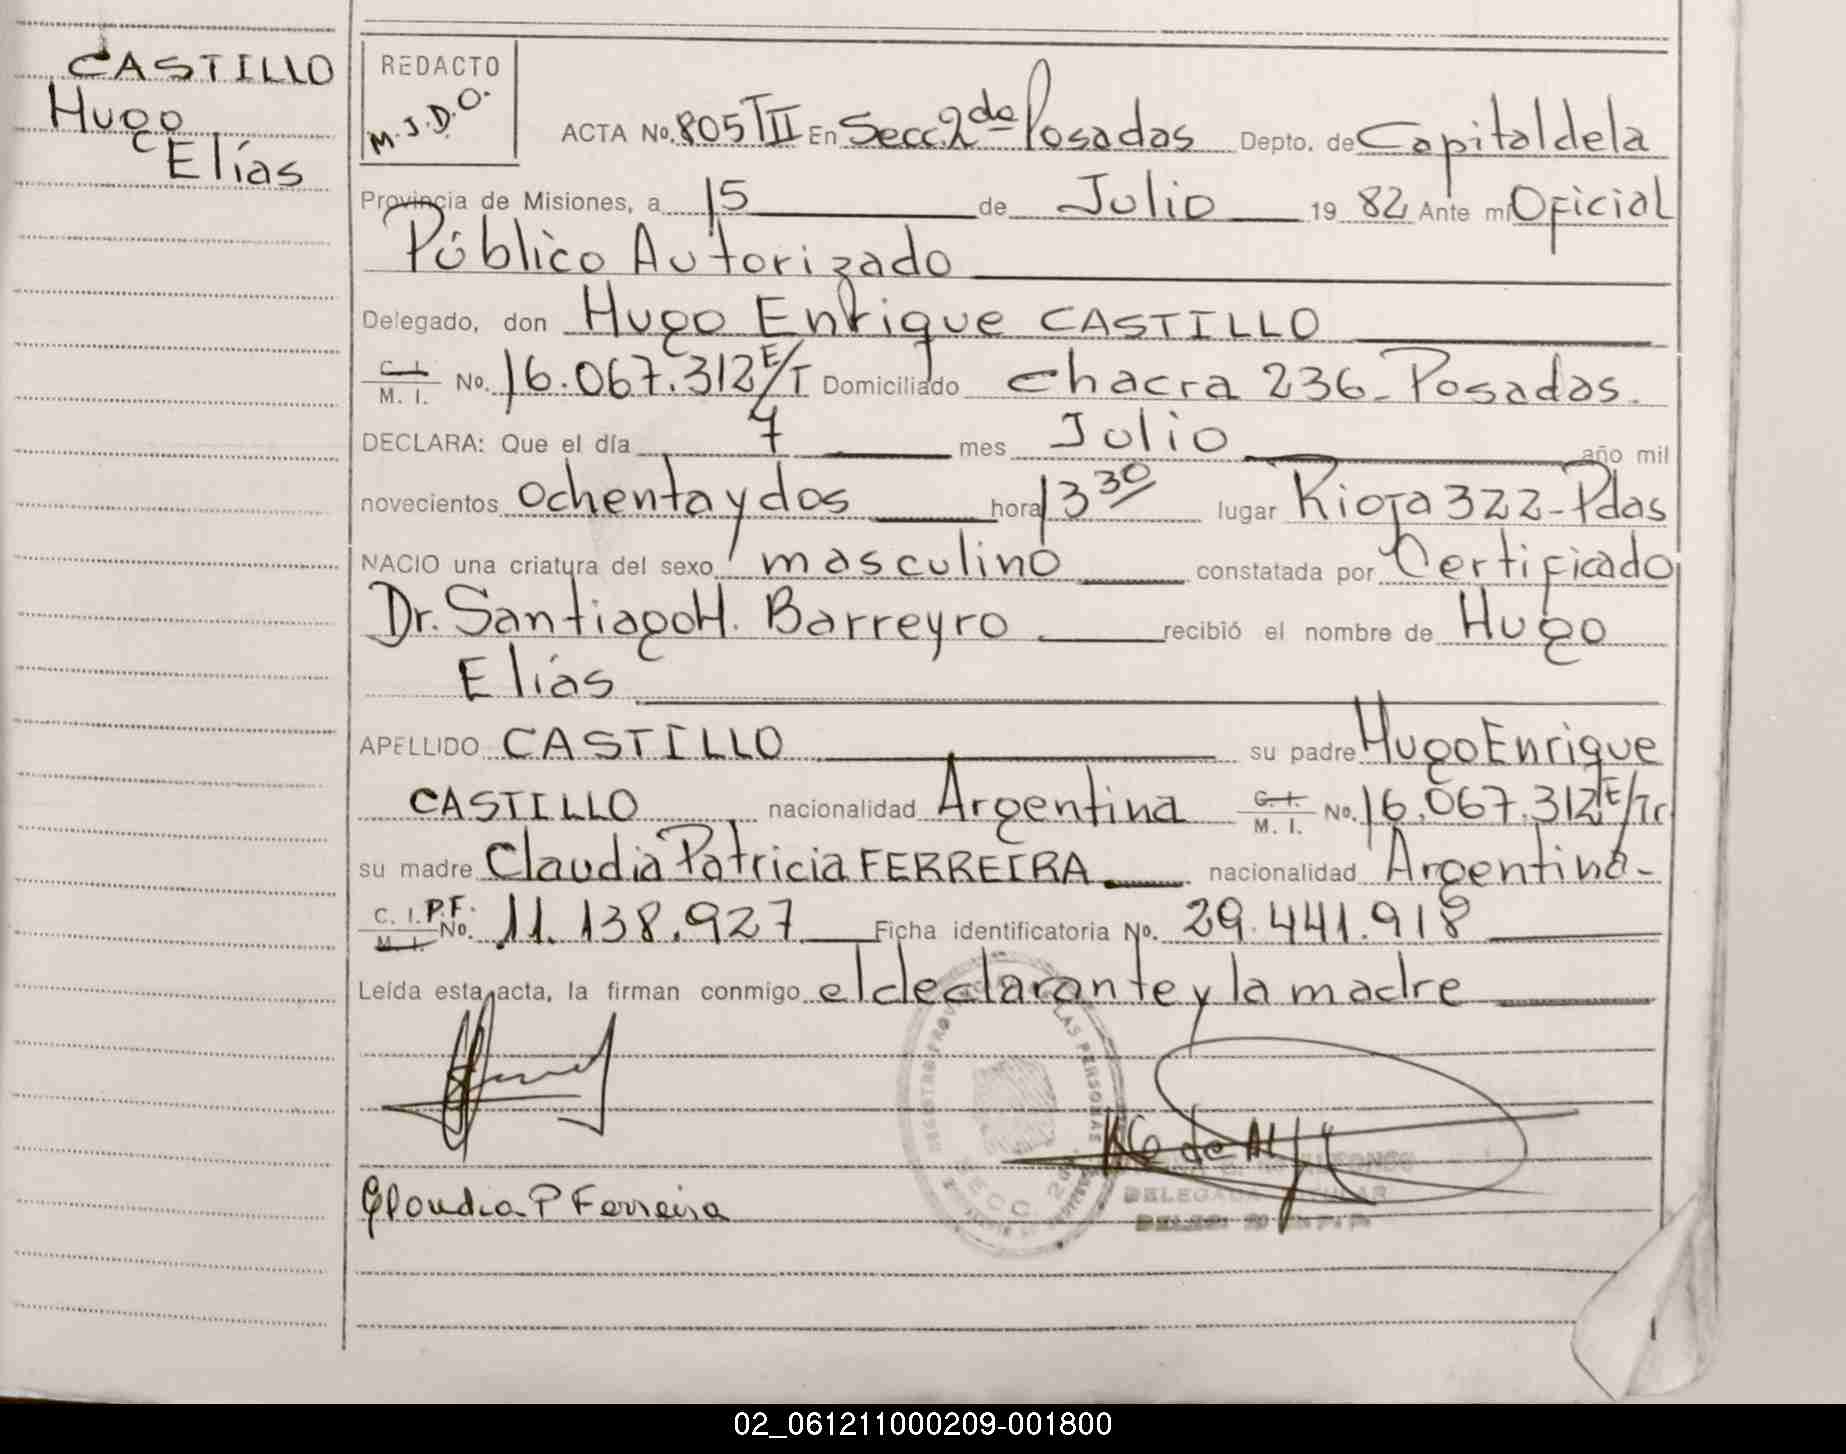 CASTILLO
Hugo
Elías
REDACTO
M.J.D.O.
ACTA No. 805 TII En Secc. 2da Posadas Depto. de Capital de la
Provincia de Misiones, a 15 de Julio 1982 Ante mi Oficial
Público Autorizado
Delegado, don Hugo Enrique CASTILLO
C. I. M. I. No. 16.067.312 E/T Domiciliado chacra 236 - Posadas.
DECLARA: Que el día 7 mes Julio año mil
novecientos ochenta y dos hora 13 30 lugar Rioja 322 - Pdas
NACIO una criatura del sexo masculino constatada por Certificado
Dr. Santiago H. Barreyro recibió el nombre de Hugo
Elías
APELLIDO CASTILLO su padre Hugo Enrique
CASTILLO nacionalidad Argentina C. I. M. I. No. 16.067.312 E/Tr
su madre Claudia Patricia FERREIRA nacionalidad Argentina -
C. I. P.F. M. I. No. 11.138.927 Ficha identificatoria No. 29.441.918
Leída esta acta, la firman conmigo el declarante y la madre
Claudia P Ferreira
DELEGADA TITULAR
02_061211000209-001800